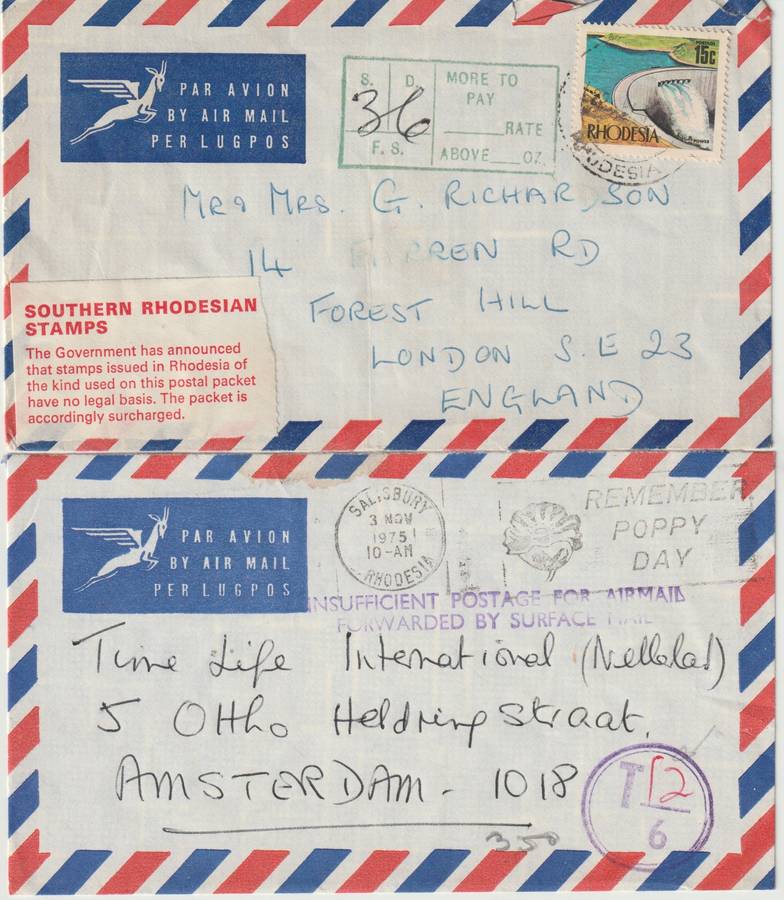 PAR AVION
BY AIR MAIL
PER LUGPOS
S. D.
36
F. S.
MORE TO
PAY
RATE
ABOVE OZ.
15c
RHODESIA
RHODESIA
MR & MRS. G. RICHARDSON
14 RD
FOREST HILL
LONDON S.E 23
ENGLAND
SOUTHERN RHODESIAN
STAMPS
The Government has announced
that stamps issued in Rhodesia of
the kind used on this postal packet
have no legal basis. The packet is
accordingly surcharged.
PAR AVION
BY AIR MAIL
PER LUGPOS
SALISBURY
3 NOV
1975
10-AM
RHODESIA
REMEMBER
POPPY
DAY
INSUFFICIENT POSTAGE FOR AIRMAIL
FORWARDED BY SURFACE MAIL
Time Life International
5 Ottho Heldringstraat.
AMSTERDAM - 1018
T 12
6
350